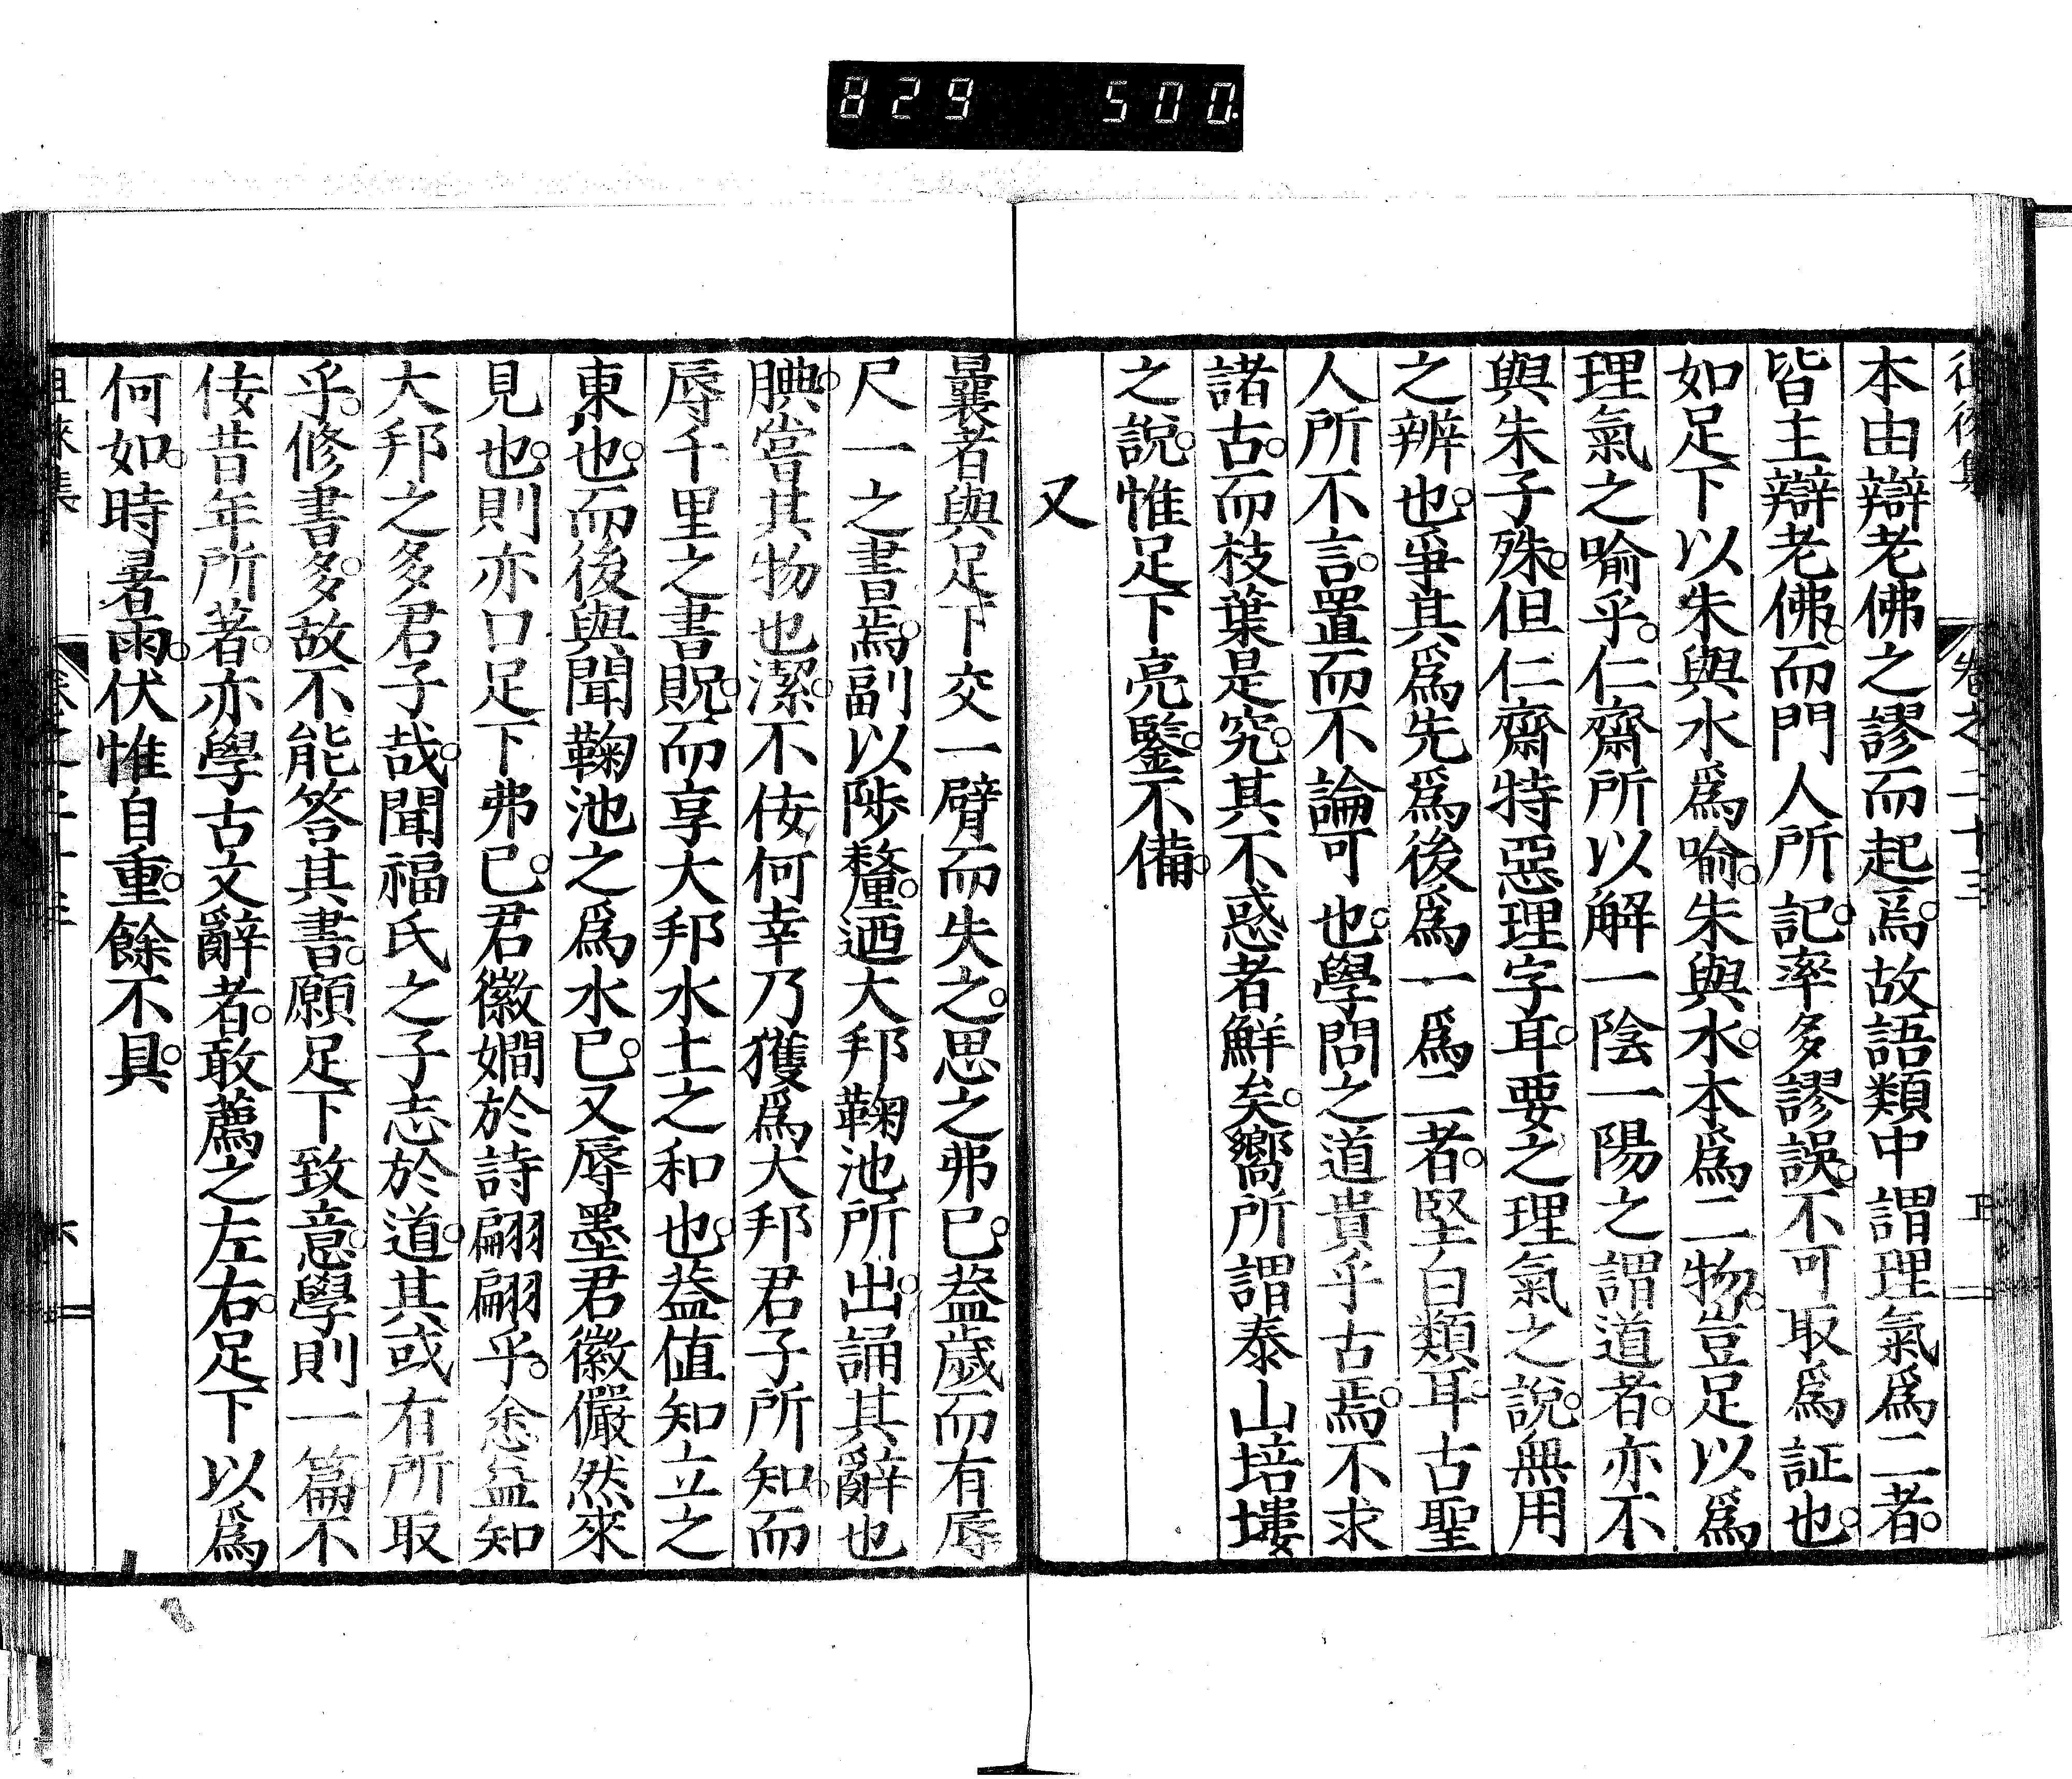 829 500.
本由辯老佛之謬而起焉。故語類中謂理氣爲二者。
皆主辯老佛。而門人所記。率多謬誤。不可取爲証也。
如足下以朱與水爲喻。朱與水。本爲二物。豈足以爲
理氣之喻乎。仁齋所以解一陰一陽之謂道者。亦不
與朱子殊。但仁齋特惡理字耳。要之理氣之說。無用
之辨也。爭其爲先爲後爲一爲二者。堅白類耳。古聖
人所不言。置而不論可也。學問之道貴乎古焉。不求
諸古。而枝葉是究。其不惑者鮮矣。嚮所謂泰山培塿
之說。惟足下亮鑒。不備。
又
曩者與足下交一臂而失之。思之弗已。葢歲而有辱
尺一之書焉。副以陟釐。迺大邦鞠池所出。誦其辭也
腆。當其物也潔。不佞何幸乃獲爲大邦君子所知。而
辱千里之書貺。而享大邦水土之和也。葢値知立之
東也。而後與聞鞠池之爲水已。又辱墨君徽儼然來
見也。則亦口足下弗已。君徽嫺於詩翩翩乎。悆益知
大邦之多君子哉。聞福氏之子志於道。其或有所取
乎。修書多。故不能答其書。願足下致意。學則一篇。不
佞昔年所著。亦學古文辭者。敢薦之左右。足下以爲
何如。時暑雨。伏惟自重。餘不具。
徂徠集 卷之二十三 六